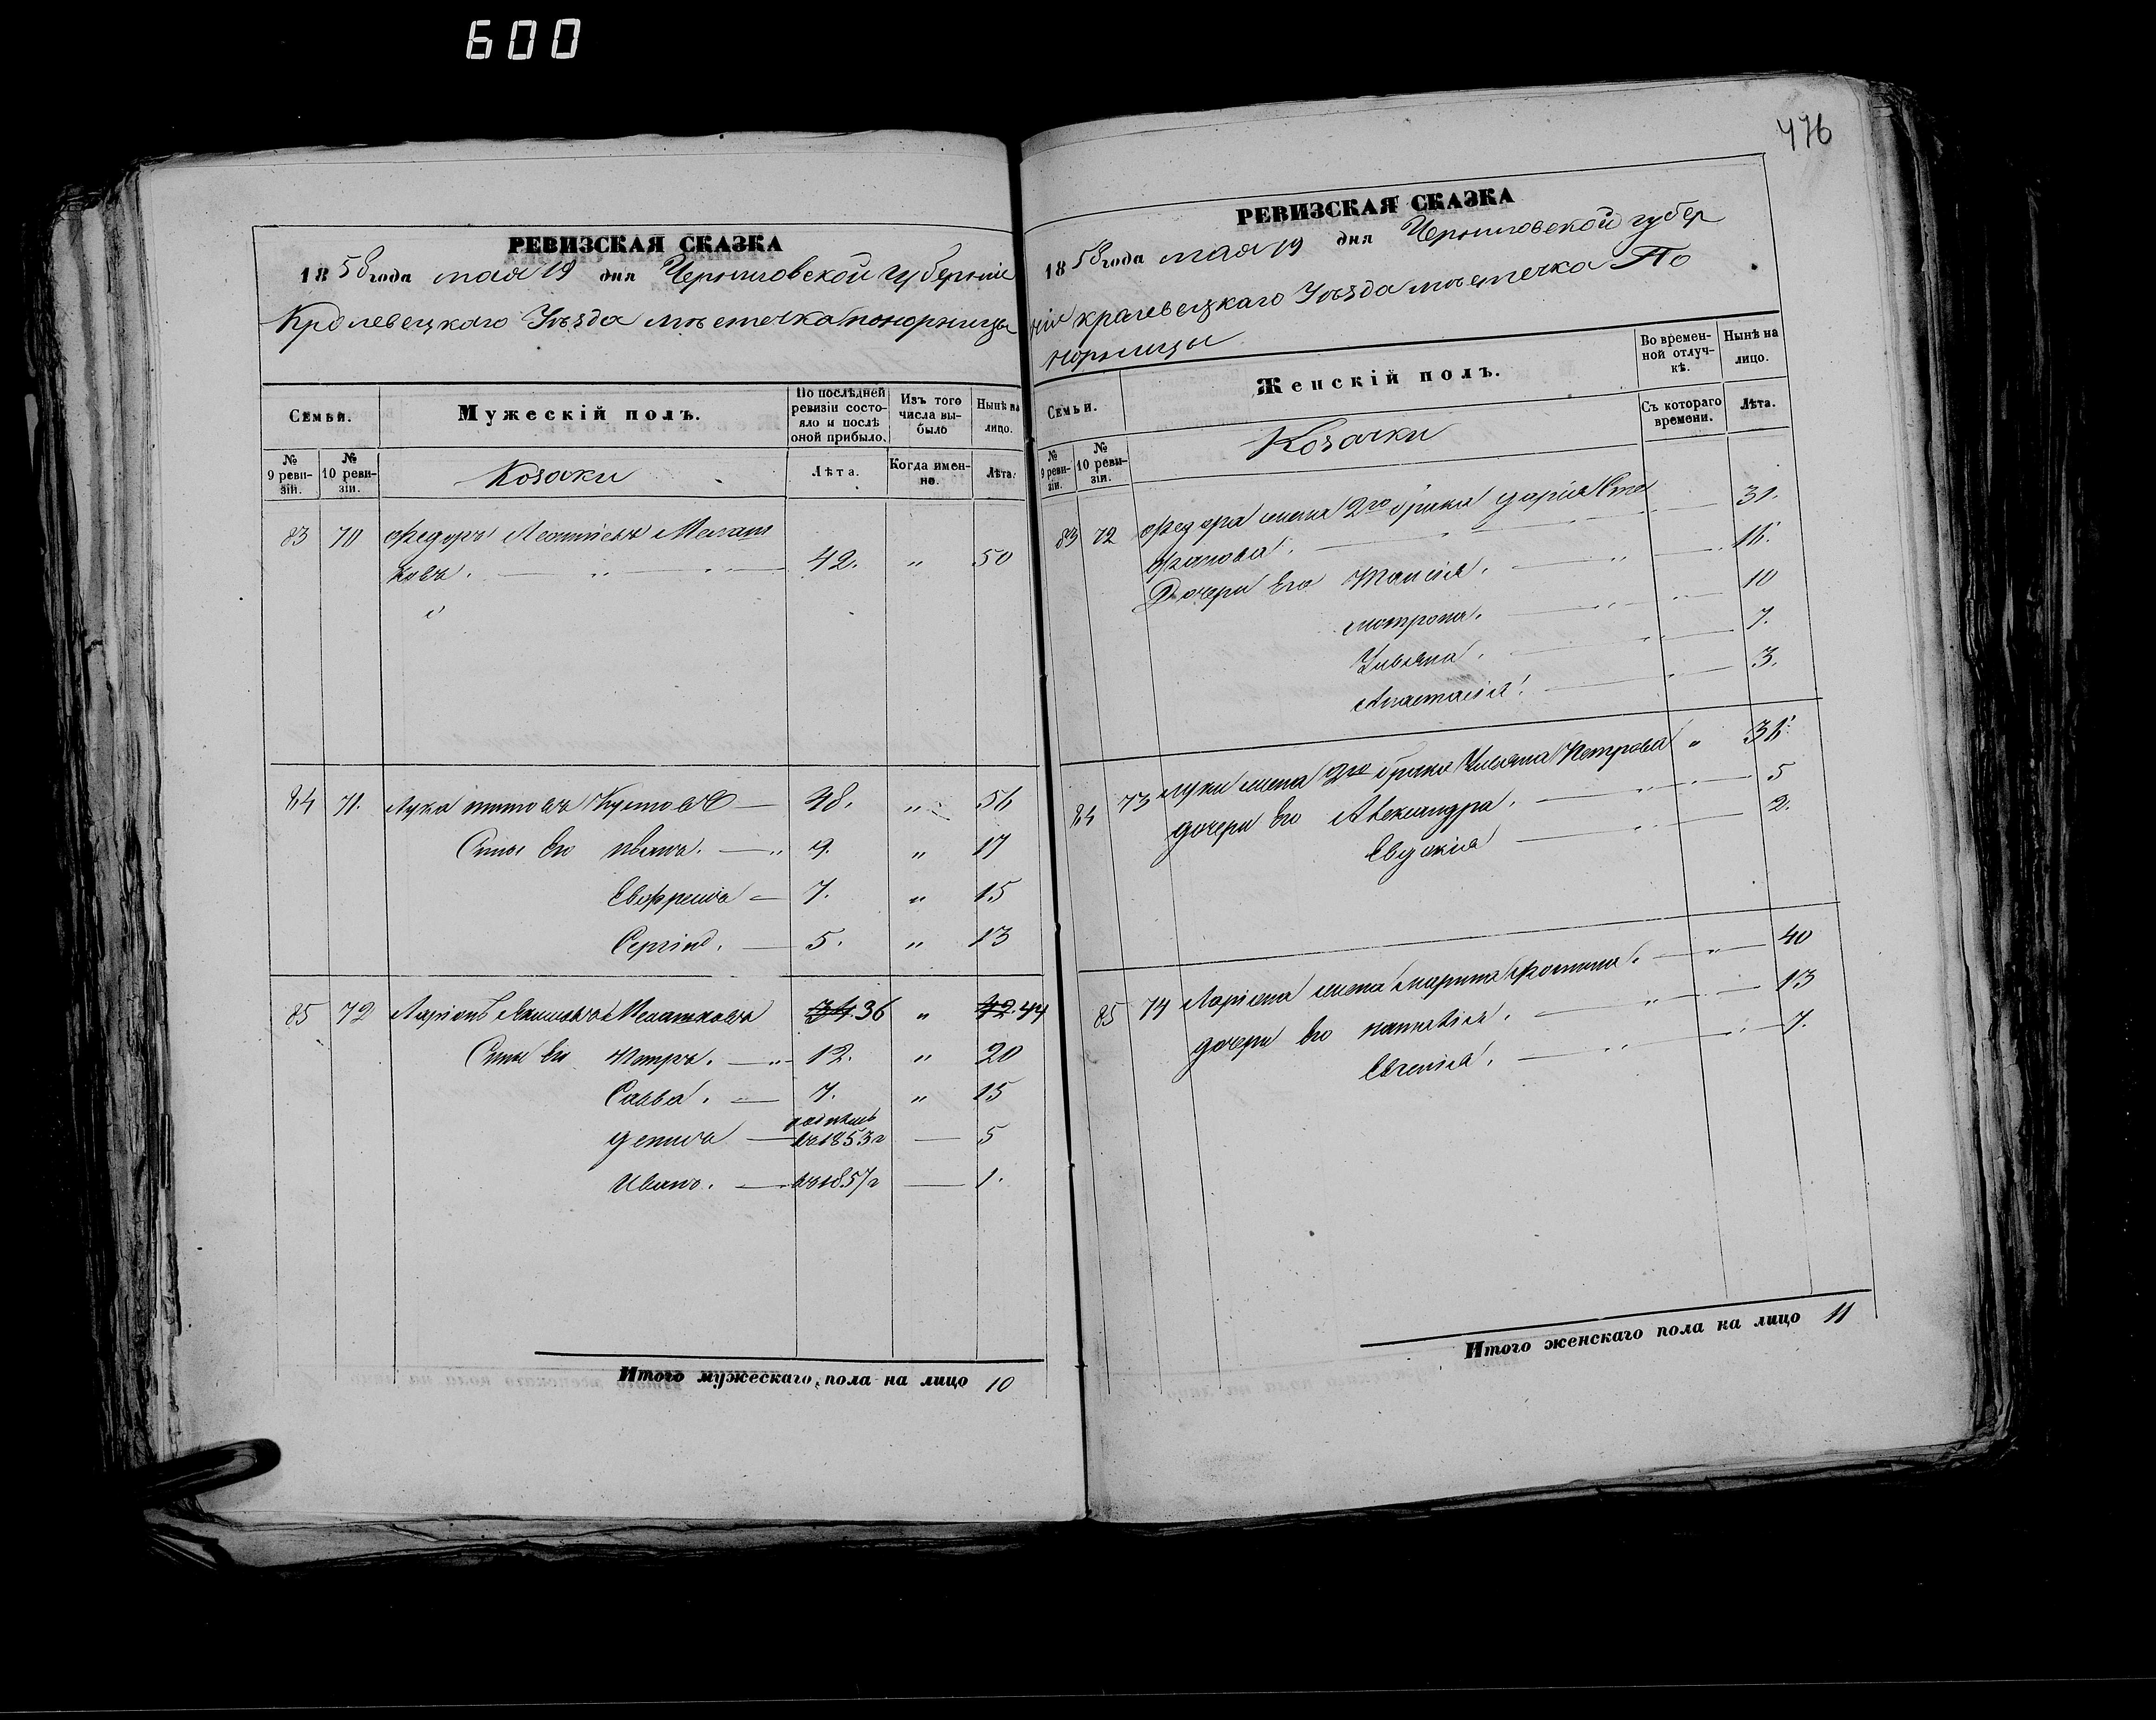 600
РЕВИЗСКАЯ СКАЗКА
1858 года мая 19 дня Черниговской губерніи
Кролевецкаго Уѣзда мѣстечка Понорницы
Семьи.
Мужескій полъ.
По послѣдней ревизіи состояло и послѣ оной прибыло.
Изъ того числа выбыло
Нынѣ на лицо.
№ 9 ревизіи.
№ 10 ревизіи.
Козаки
Лѣта.
Когда именно.
Лѣта.
83 70 Федоръ Леонтіевъ
ковъ. 42. " 50
84 71. Лука Титовъ 48. " 56
Сыны его Иванъ. 9. " 17
Евфремъ 7. " 15
Сергій. 5. " 13
85 72 Ларіонъ 34. 36 " 42. 44
Сыны его Петръ. 12. " 20
Савва. 7. " 15
родился
Денисъ въ 1853 г 5
Иванъ. въ 1857 г 1.
Итого мужескаго пола на лицо 10
476
РЕВИЗСКАЯ СКАЗКА
1858 года мая 19 дня Черниговской губер
ніи Кралевецкаго Уѣзда мѣстечка По
норницы
Семьи.
Женскій полъ.
Во временной отлучкѣ.
Нынѣ на лицо.
№ 9 ревизіи.
№ 10 ревизіи.
Козачки
Съ котораго времени.
Лѣта.
83 72 Федора жена 2го брака Дарія Сте
фанова. 31.
Дочери его Таисія. 16.
Мотрона. 10
Ульяна. 7.
Анастасія. 3.
84 73 Луки жена 2го брака Ульяна Петрова " 36.
дочери его Александра. 5
Евдокія 2.
85 74 Ларіона жена Марина Фомина. " 40
дочери его Наталія. 13
Евгенія. 7.
Итого женскаго пола на лицо 11